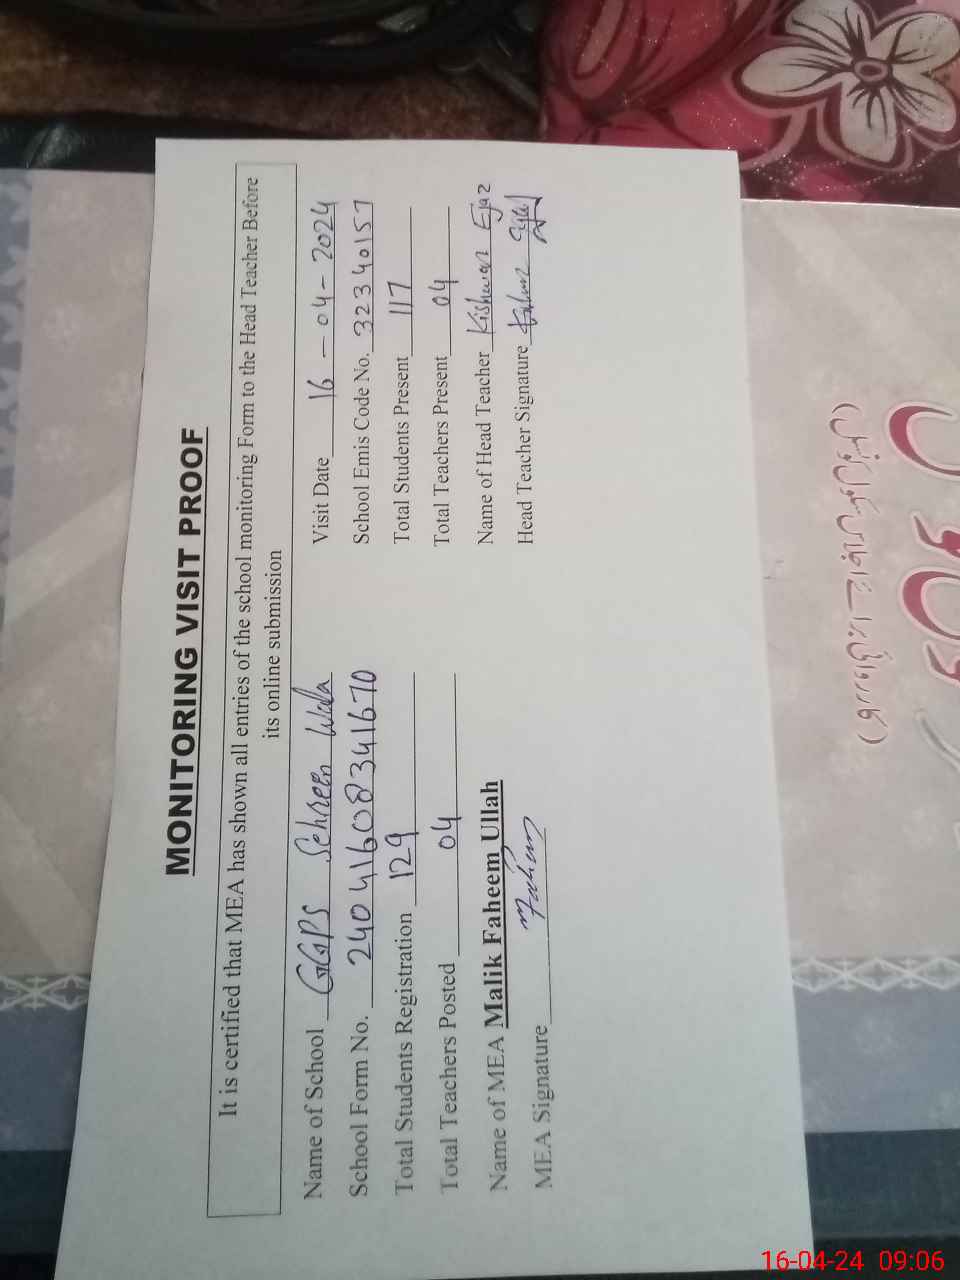 MONITORING VISIT PROOF
It is certified that MEA has shown all entries of the school monitoring Form to the Head Teacher Before
its online submission
Name of School GGPS Sehreen Wala Visit Date 16-04-2024
School Form No. 24041608341670 School Emis Code No. 32340157
Total Students Registration 129 Total Students Present 117
Total Teachers Posted 04 Total Teachers Present 04
Name of MEA Malik Faheem Ullah Name of Head Teacher Kishwar Ejaz
MEA Signature Faheem Head Teacher Signature
16-04-24 09:06